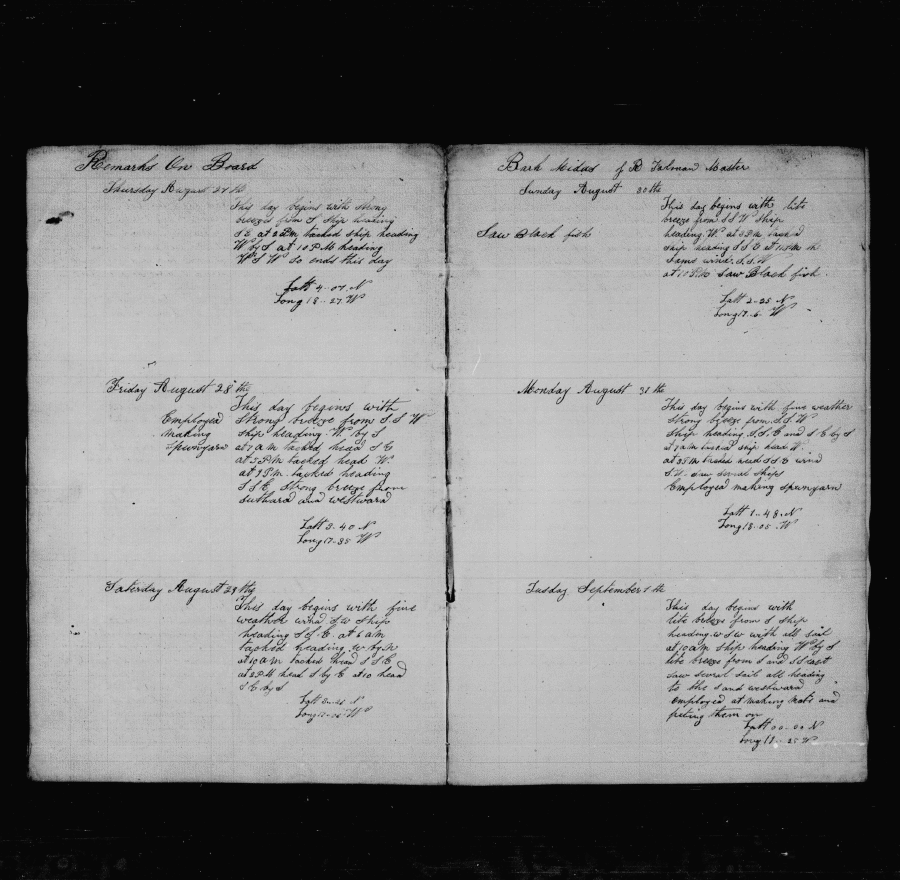 Remarks On Board
Thursday August 27 th
This day begins with strong
breezes from S Ship heading
S E at 2 PM tacked ship heading
W by S at 10 PM heading
W S W so ends this day
Latt 4-07 N
Long 18-27 W
Friday August 28 th
Employed
making
spunyarn
This day begins with
strong breeze from S.S W
ship heading W by S
at 7 am tacked head S E
at 5 PM tacked head W.
at 9 P.M. tacked heading
S S E strong breeze from
suthard and westward
Latt 3-40 N
Long 17-35 W
Saterday August 29 th
This day begins with fine
weather wind SW Ship
heading S E at 6 am
tacked heading W by N
at 10 am tacked head S S E
at 2 PM head S by E at 10 head
S E by S
Latt N
Long W
Bark Midas of R Talman Master
Sunday August 30 th
Saw Black fish
This day begins with lite
breeze from S S W Ship
heading W at 3 PM tacked
ship heading S S E at
Same wind S.S.W
at 10 saw Black fish
Latt 2-25 N
Long 17-6 W
Monday August 31 th
This day begins with fine weather
Strong breeze from S.S.W
Ship heading S.S.E and S E by S
at 7 am tacked ship head W.
at 3 PM tacked head S S E wind
S.W. saw seval ships
Employed making spunyarn
Latt 1-48 N
Long 18-05 W
Tusday September 1 th
This day begins with
lite breeze from S ship
heading W S W with all sail
at 10 am ship heading W by S
lite breeze from S and S S east
saw seveal sail all heading
to the S and westward
employed at making mats and
puting them on
Latt 00-00 N
Long W